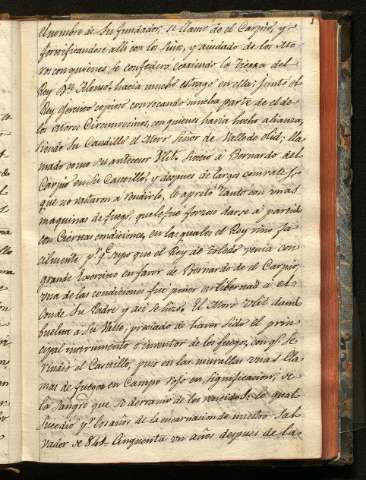 el nombre de Su fundador, se llamó de el Carpio, y
fortificandose alli con los suios, y auidado de los Mo-
ros con quienes se confedero corriendo las tierras del
Rey Dn. Alonso, hacia mucho estrago en ellas; Junto el
Rey Exercito copioso convocando mucha parte de el de
los Moros Circumvecinos, con quienes havia hecho alianza,
siendo Su Caudillo el Moro Señor de Valledolid; lla-
mado como su antecesor Ulit, sitiò à Bernardo del
Carpio en Su Castillo, y despues de largo combate
que no bastaron à rendirlo, le apretò tanto con unas
maquinas de fuego, que le fue forzoso darse à partido
con Ciertas condiciones, en las quales el Rey vino fa-
cilmente, pr. qe. supo que el Rey de Toledo venia con
grande Exercito en favor de Bernardo de el Carpio,
una de las condiciones fue poner en libertad à el
Conde Su Padre, y asi se hizo. El Moro Ulit dando
buelta à Su Valle, preciado de haver sido el prin-
cipal instrumento e inventor de los fuegos, con qe. se
rindio el Castillo, puso en las murallas unas lla-
mas de fuego en Campo rojo en significacion, de
la sangre que se derramò de los vencidos: lo qual
Sucedio pr. los años de la encarnacion de nuestro Sal-
vador de 844. Cinquenta un años despues de la